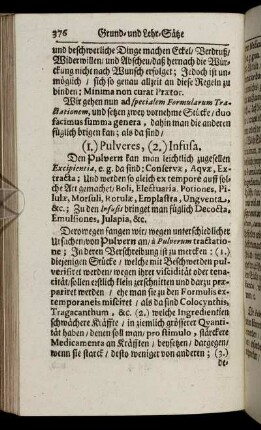 376 Grund- und Lehr-Sätze
und beschwerliche Dinge machen Eckel/ Verdruß/
Widerwillen und Abscheu/ daß hernach die Wür-
ckung nicht nach Wunsch erfolget; Jedoch ist un-
möglich / sich so genau allzeit an diese Regeln zu
binden; Minima non curat Prætor.
Wir gehen nun ad specialem Formularum Tra-
ctationem, und setzen zwey vornehme Stücke/ duo
facimus summa genera, dahin man die anderen
füglich bringen kan; als da sind/
(1.) Pulveres, (2.) Infusa.
Den Pulvern kan man leichtlich zugesellen
Excipientia, e. g. da sind; Conservæ, Aqvæ, Ex-
tracta; Und werden so gleich ex tempore auff sol-
che Art gemachet/ Boli, Electuaria. Potiones, Pi-
lulæ, Morsuli, Rotulæ, Emplastra, Ungventa,
&c.; Zu den Infusis bringet man füglich Decocta,
Emulsiones, Julapia, &c.
Derowegen fangen wir/ wegen unterschiedlicher
Ursachen/ von Pulvern an/ à Pulverum tractatio-
ne; In deren Verschreibung ist zu mercken: (1.)
diejenigen Stücke / welche mit Beschwerden pul-
verisiret werden/ wegen ihrer visciditât oder tena-
citât/ sollen erstlich klein zerschnitten und darzu præ-
pariret werden / ehe man sie zu den Formulis ex-
temporaneis misciret / als da sind Colocynthis,
Tragacanthum, &c. (2.) welche Ingredientien
schwächere Kräffte / in ziemlich grösserer Qvanti-
tât haben/ denen soll man/ pro stimulo, stärckere
Medicamenta an Kräfften / beysetzen/ dargegen/
wenn sie starck / desto weniger von anderen; (3.)
de-